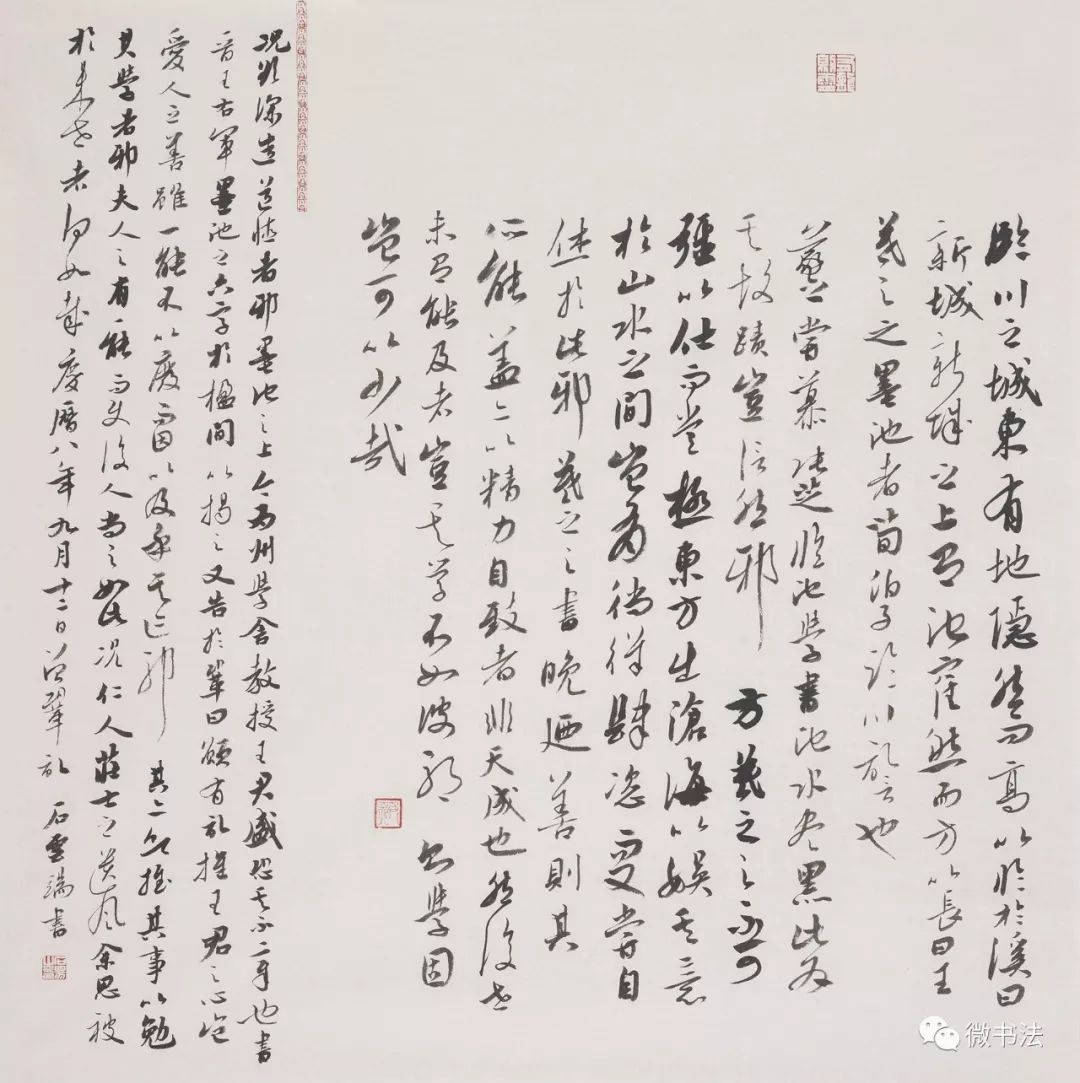 臨川之城東有地隱然而高以臨於溪曰
新城新城之上有池窪然而方以長曰王
羲之之墨池者荀伯子臨川記云也
羲之嘗慕張芝臨池學書池水盡黑此為
其故蹟豈信然邪 方羲之之不可
彊以仕而嘗極東方出滄海以娛其意
於山水之間豈有徜徉肆恣又嘗自
休於此邪羲之之書晚廼善則其
所能蓋亦以精力自致者非天成也然後世
未有能及者豈其學不如彼邪 則學固
豈可以少哉
況欲深造道德者邪墨池之上今為州學舍教授王君盛恐其不章也書
晉王右軍墨池之六字於楹間以揭之又告於鞏曰願有記推王君之心豈
愛人之善雖一能不以廢而因以及乎其跡邪 其亦欲推其事以勉
其學者邪夫人之有一能而使後人尚之如此況仁人莊士之遺風余思被
於來世者何如哉慶曆八年九月十二日曾鞏記 石雲端書
微书法